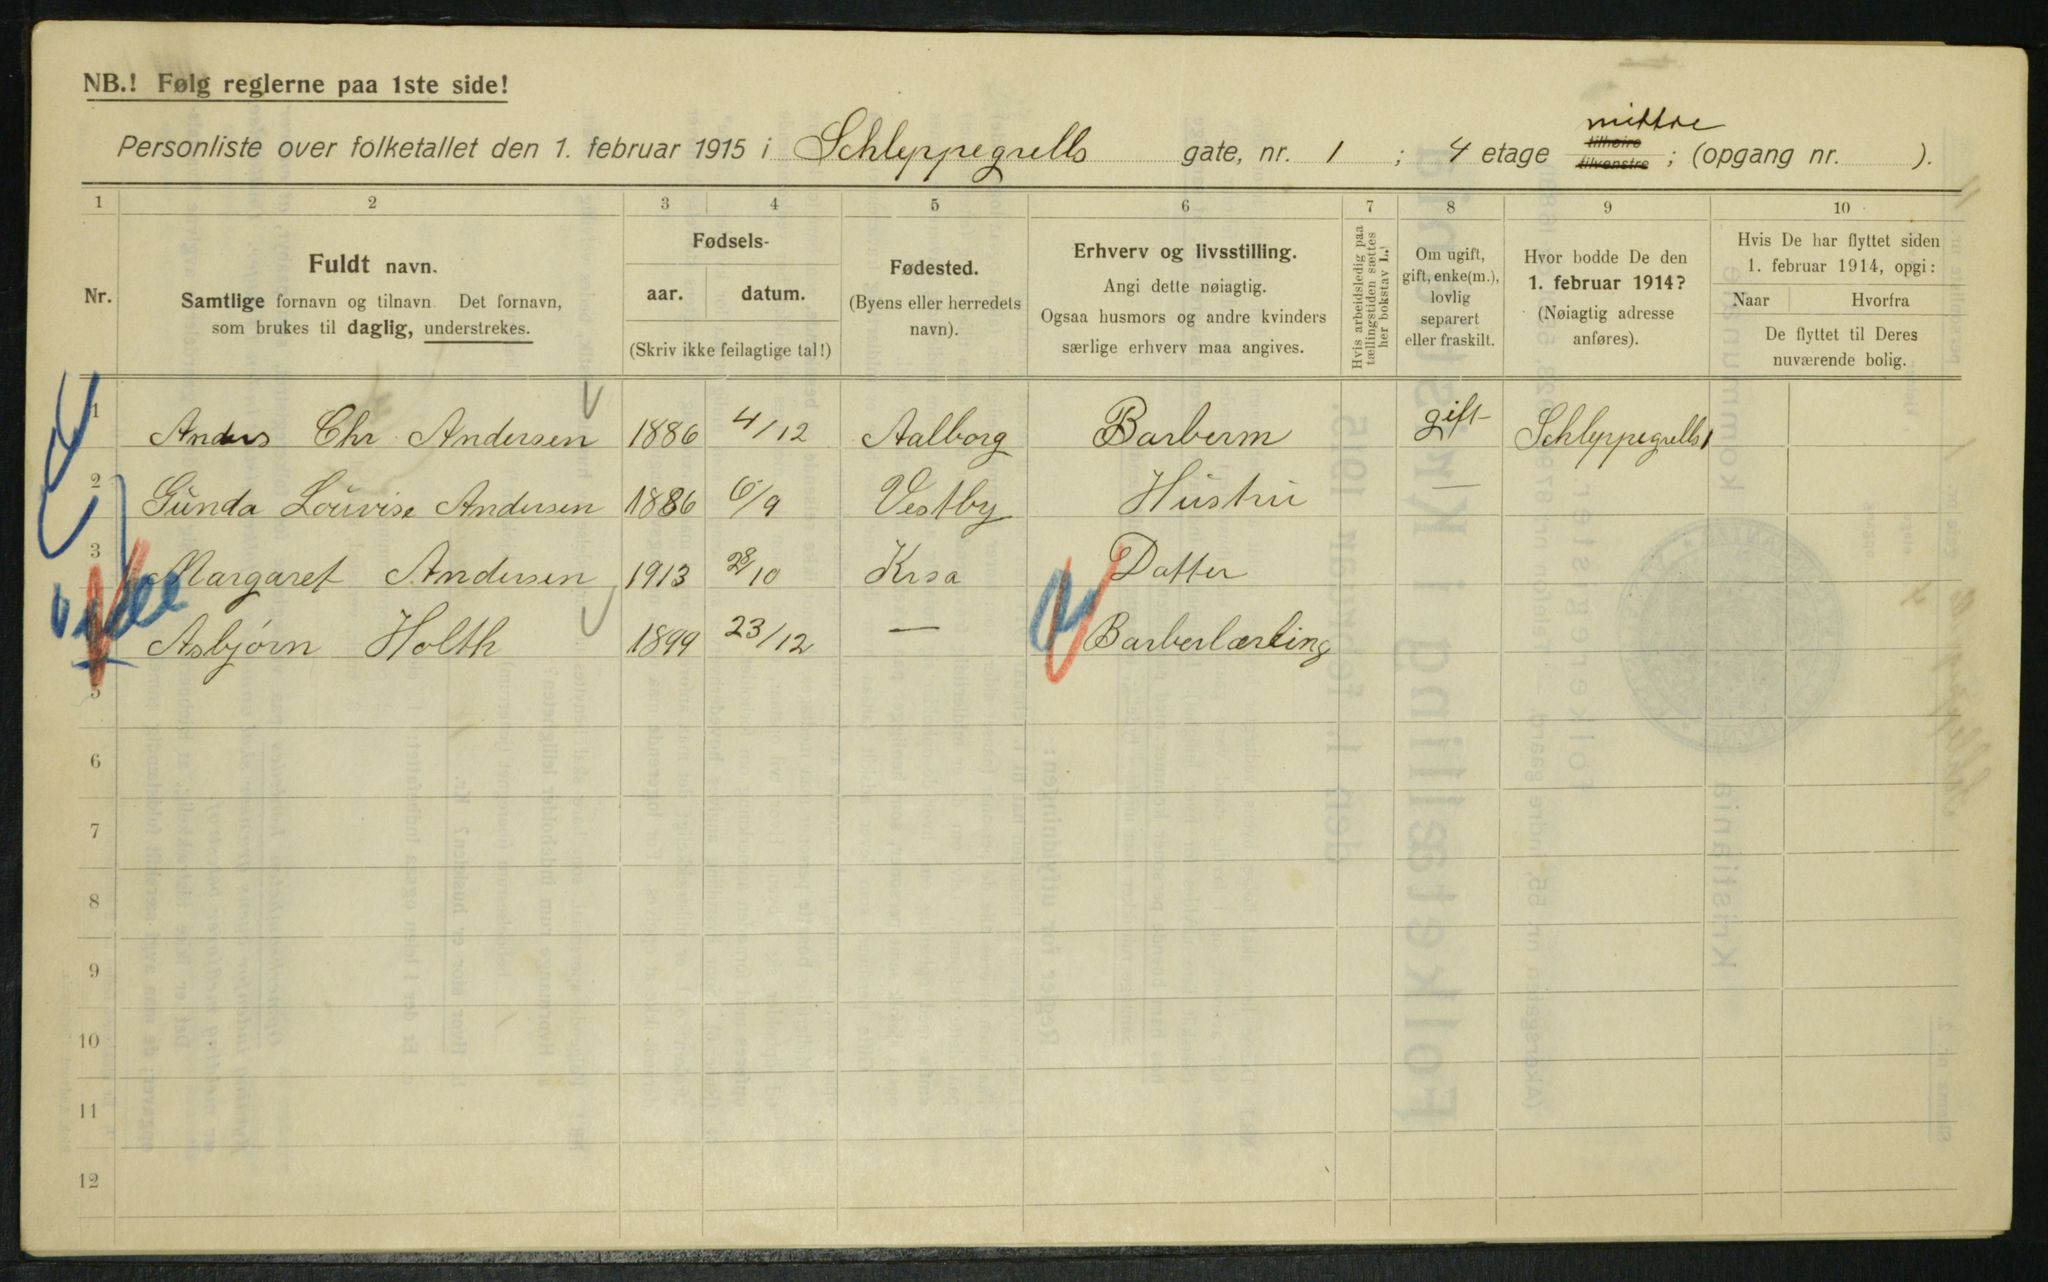 NB.! Følg reglerne paa 1ste side!
Personliste over folketallet den 1. februar 1915 i Schleppegrells gate, nr. 1 ; 4 etage tilhøire tilvenstre mittre ; (opgang nr. ).
1 2 3 4 5 6 7 8 9 10
Nr.
Fuldt navn.
Samtlige fornavn og tilnavn. Det fornavn,
som brukes til daglig, understrekes.
Fødsels-
aar. datum.
(Skriv ikke feilagtige tal!)
Fødested.
(Byens eller herredets
navn).
Erhverv og livsstilling.
Angi dette nøiagtig.
Ogsaa husmors og andre kvinders
særlige erhverv maa angives.
Hvis arbeidsledig paa
tællingstiden sættes
her bokstav L!
Om ugift,
gift, enke(m.),
lovlig
separert
eller fraskilt.
Hvor bodde De den
1. februar 1914?
(Nøiagtig adresse
anføres).
Hvis De har flyttet siden
1. februar 1914, opgi:
Naar Hvorfra
De flyttet til Deres
nuværende bolig.
1 Anders Chr Andersen 1886 4/12 Aalborg Barberm gift Schleppegrells 1
2 Gunda Louvise Andersen 1886 6/9 Vestby Hustru —
3 Margaret Andersen 1913 28/10 Krsa Datter
Asbjørn Holth 1899 23/12 — Barberlærling
5
6
7
8
9
10
11
12